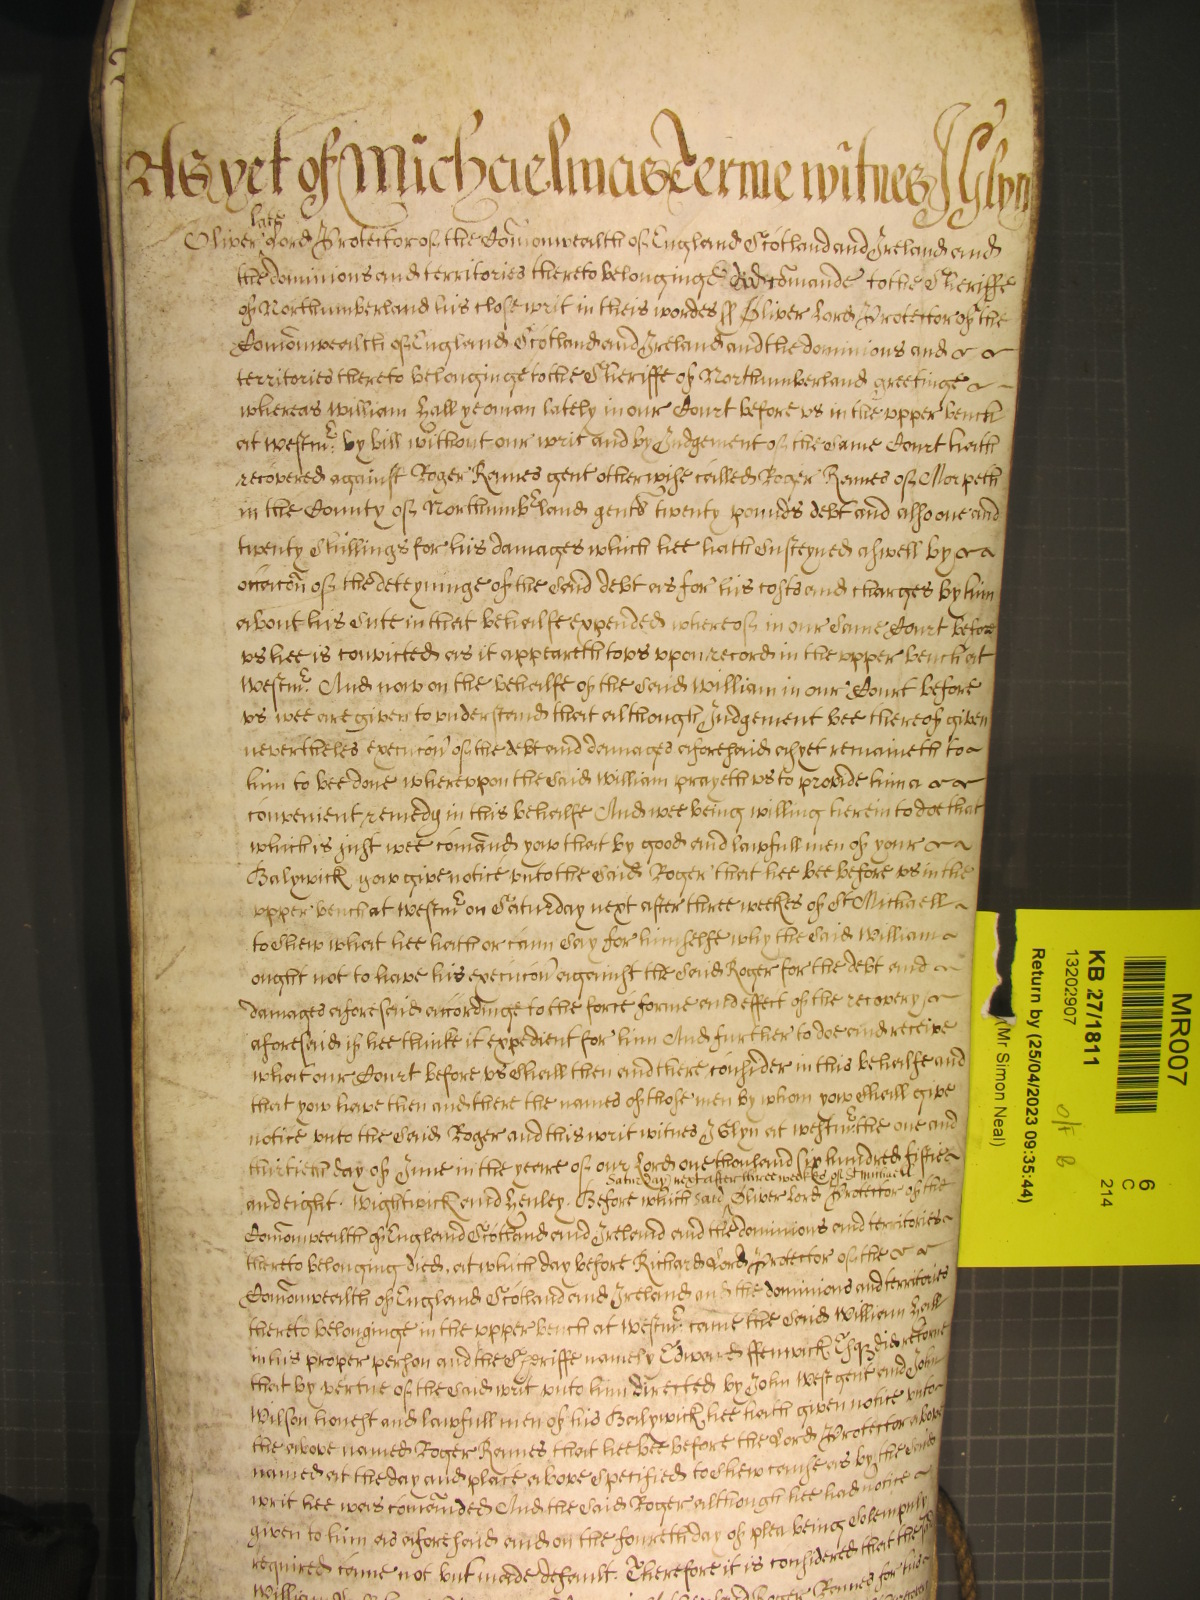 As yet of Michaelmas Terme witnes J Glyn
late
Oliver Lord Protector of the Comonwealth of England Scotland and Ireland and
the dominions and territories thereto belonginge did comande to the Sheriffe
of Northumberland his close writ in theis wordes ss Oliver Lord Protector of the
Comonwealth of England Scotland and Ireland and the dominions and
territories thereto belonginge to the Sheriffe of Northumberland greetinge
whereas William Hall yeoman lately in our Court before us in the upper bench
at Westmr. by bill without our writ and by Judgement of the same Court hath
recovered against Roger Raines gent otherwise called Roger Raines of Morpeth
in the County of Northumbrland gent twenty pounds debt and also one and
twenty Shillings for his damages which hee hath Susteyned aswell by
occacon of the deteyninge of the said debt as for his costs and charges by him
about his Sute in that behalfe expended whereof in our same Court before
us hee is convicted as it appeareth to us upon record in the upper bench at
Westmr. And now on the behalfe of the said William in our Court before
us wee are given to understand that although Judgement bee thereof given
nevertheles execucon of the debt and damages aforesaid as yet remaineth to
him to bee done whereupon the said William prayeth us to provide him a
convenient remedy in this behalfe And wee being willing herein to doe that
which is just wee comand yow that by good and lawfull men of your
Balywick yow give notice unto the said Roger that hee bee before us in the
upper bench at Westmr on Saturday next after three weekes of St Michaell
to shew what hee hath or cann say for himselfe why the said William
ought not to have his execucon against the said Roger for the debt and
damages aforesaid accordinge to the force forme and effect of the recovery
aforesaid if hee thinke it expedient for him And further to doe and receive
what our Court before us shall then and there consider in this behalfe and
that yow have then and there the names of those men by whom yow shall give
notice unto the said Roger and this writ witnes J Glyn at westmr the one and
thirtieth day of June in the yeare of our Lord one thousand six hundred fiftie
Saturday next after three weekes of St Michaell
and eight. Wightwick and Henley. Before which said Oliver Lord Protector of the
Comonwealth of England Scotland and Ireland and the dominions and territories
thereto belonging died, at which day before Richard Lord Protector of the
Comonwealth of England Scotland and Ireland and the dominions and territories
thereto belonginge in the upper bench at Westmr. came the said William Hall
in his proper person and the Sheriffe namely Edward ffenwick Esqr did retorne
that by vertue of the said writ unto him directed by John West gent and John
Wilson honest and lawfull men of his Balywick hee hath given notice unto
the above named Roger Raines that hee bee before the Lord Protector above
named at the day and place above specified to shew cause as by the said
writ hee was comanded And the said Roger although hee had notice
given to him as aforesaid and on the fourth day of plea being Solempnly
required came not but made default. Therefore it is considered that the said
William Roger Raines for his
MR007
KB 27/1811
13202907
Return by (25/04/2023 09:35:44)
(Mr Simon Neal)
6
C
214